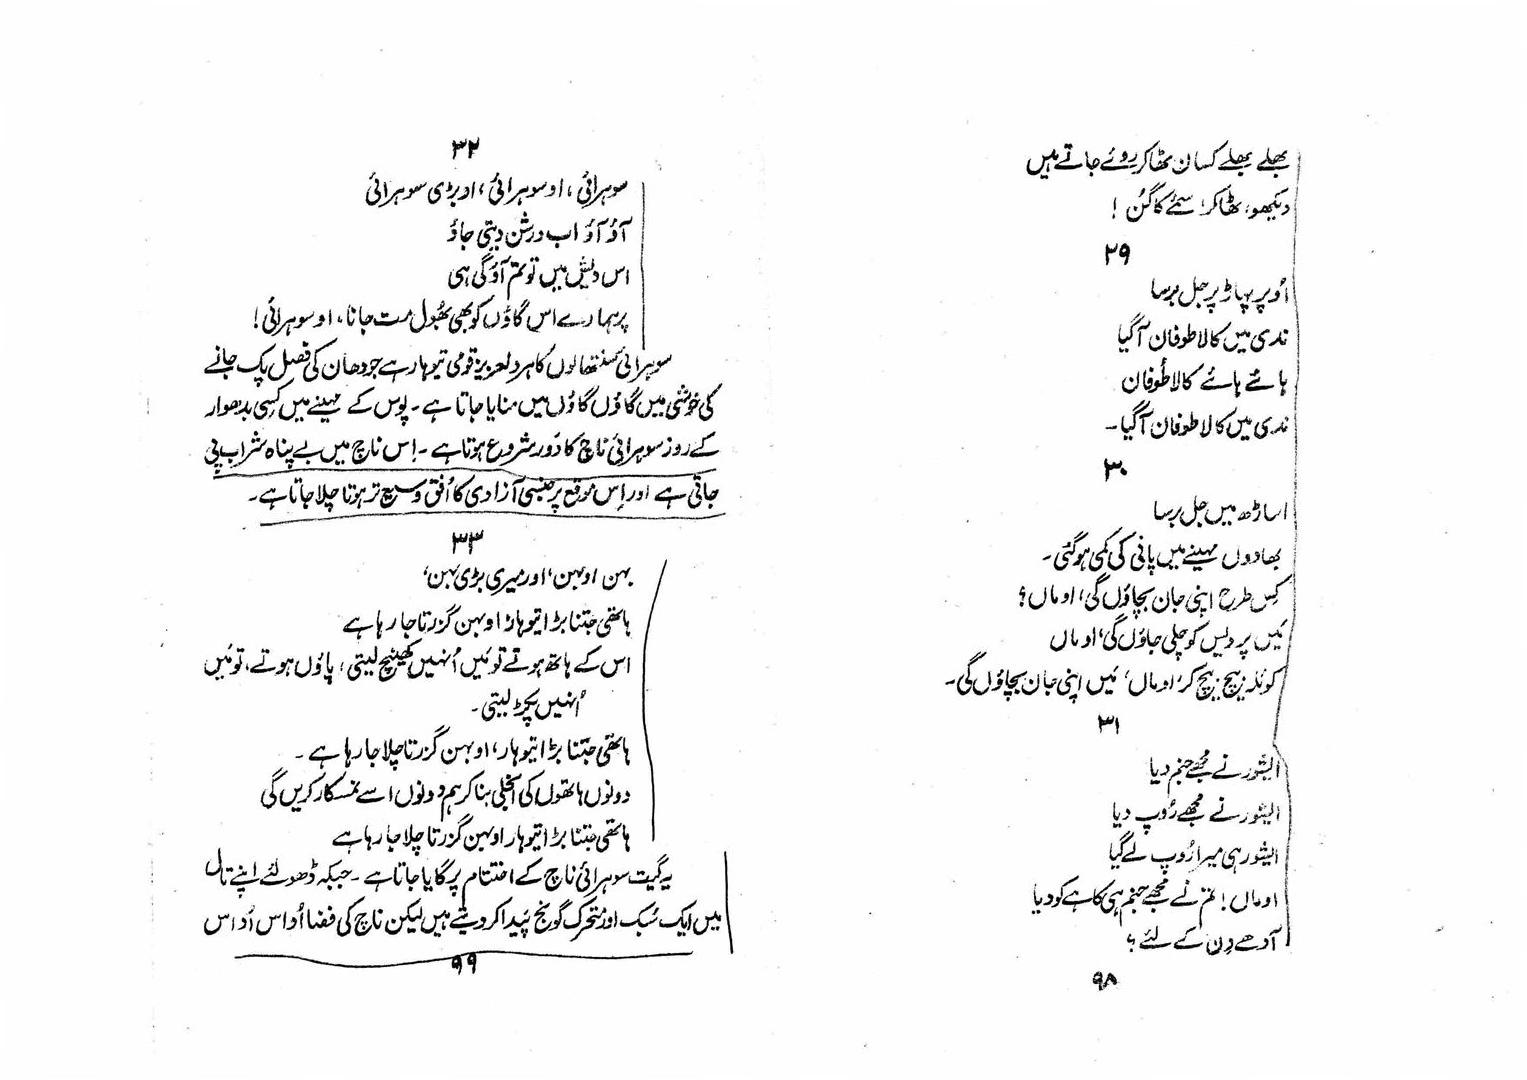 بھلے بھلے کسان ٹھاکر روئے جاتے ہیں
دیکھو، ٹھاکر! سمئے کا گُن!
۲۹
اُوپر پہاڑ پر جل برسا
ندی میں کالا طوفان آگیا
ہائے ہائے کالا طُوفان
ندی میں کالا طوفان آگیا۔
۳۰
اساڑھ میں جل برسا
بھادوں مہینے میں پانی کی کمی ہوگئی۔
کِس طرح اپنی جان بچاؤں گی، او ماں؟
مَیں پردیس کو چلی جاؤں گی، او ماں
کوئلہ بیچ بیچ کر، او ماں، مَیں اپنی جان بچاؤں گی۔
۳۱
ایشور نے مجھے جنم دیا
ایشور نے مجھے رُوپ دیا
ایشور ہی میرا رُوپ لے گیا
او ماں! تم نے مجھے جنم ہی کاہے کو دیا
آدھے دِن کے لئے؟
۹۸
۳۲
سوہرائی، او سوہرائی، او بڑی سوہرائی
آؤ آؤ اب درشن دیتی جاؤ
اس دیش میں تو تم آؤ گی ہی
پر ہمارے اس گاؤں کو بھی بھُول مت جانا، او سوہرائی!
سوہرائی سنتھالوں کا ہر دلعزیز قومی تیوہار ہے جو دھان کی فصل پک جانے
کی خوشی میں گاؤں گاؤں میں منایا جاتا ہے۔ پوس کے مہینے میں کسی بدھوار
کے روز سوہرائی ناچ کا دَور شروع ہوتا ہے۔ اِس ناچ میں بے پناہ شراب پی
جاتی ہے اور اِس موقع پر جنسی آزادی کا اُفق وسیع تر ہوتا چلا جاتا ہے۔
۳۳
بہن او بہن، اور میری بڑی بہن،
ہاتھی جتنا بڑا تیوہار او بہن گزرتا جا رہا ہے
اس کے ہاتھ ہوتے تو مَیں اُنہیں کھینچ لیتی، پاؤں ہوتے، تو مَیں
اُنہیں پکڑ لیتی۔
ہاتھی جتنا بڑا تیوہار، او بہن گزرتا چلا جا رہا ہے۔
دونوں ہاتھوں کی انجلی بنا کر ہم دونوں اسے نمسکار کریں گی
ہاتھی جتنا بڑا تیوہار او بہن گزرتا چلا جا رہا ہے
یہ گیت سوہرائی ناچ کے اختتام پر گایا جاتا ہے۔ جبکہ ڈھولئے اپنے تال
میں ایک سُبک اور متحرک گونج پیدا کر دیتے ہیں لیکن ناچ کی فضا اُداس اُداس
۹۹